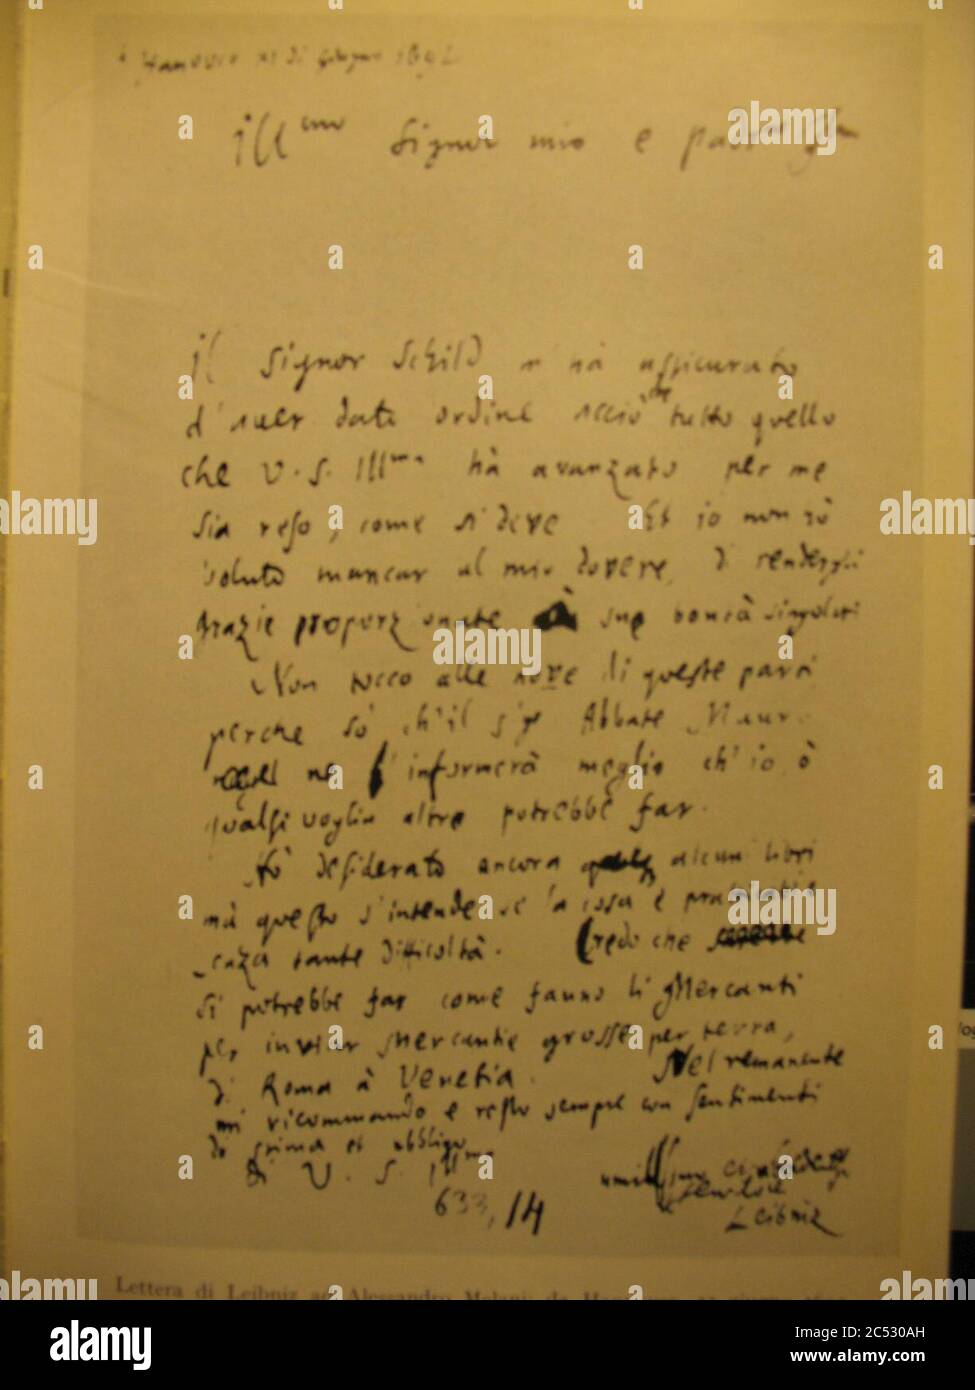 Hanover di giugno 1692
Ill^mo Signor mio e
il Signor Schild m'hà assicurato
d'aver dato ordine acciò che tutto quello
che V. S. Ill^ma hà avanzato per me
sia reso, come si deve Et io non hò
voluto mancar al mio dovere, di
grazie proporzionate à sue bontà singolari
Non tocco alle nove di queste parti
perche sò ch'il sig^r Abbate Mauro
ne l'informerà meglio ch'io ò
qualsivoglia altre potrebbe far.
Hò desiderato ancora alcuni libri
mà questo s'intende se la cosa è
senza tante difficoltà. Credo che
si potrebbe far come fanno li Mercanti
per inviar Mercantie grosse per terra,
di Roma à Venetia. Nel remanente
mi ricommando e resto sempre con sentimenti
di stima et obbligo
di V. S. Ill^ma
servitore
Leibniz
633, 14
Lettera di Leibniz ad Alessandro Melani da
alamy
Image ID: 2C530AH
www.alamy.com